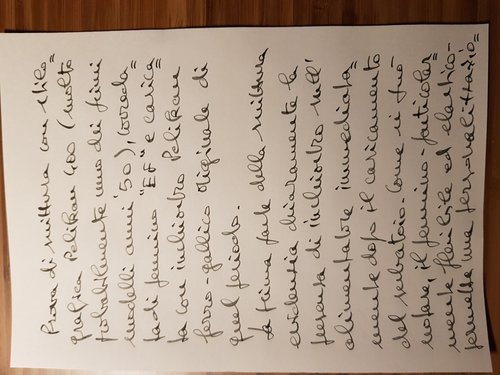 Prova di scrittura con stilo=
grafica Pelikan 400 (molto
probabilmente uno dei primi
modelli anni '50), correda=
ta di pennino "EF" e carica=
ta con inchiostro Pelikan
ferro-gallico originale di
quel periodo.
La prima parte della scrittura
evidenzia chiaramente la
presenza di inchiostro nell'
alimentatore immediata=
mente dopo il caricamento
del serbatoio. Come si può
notare, il pennino - particolar=
mente flessibile ed elastico -
permette una personalizzazio=